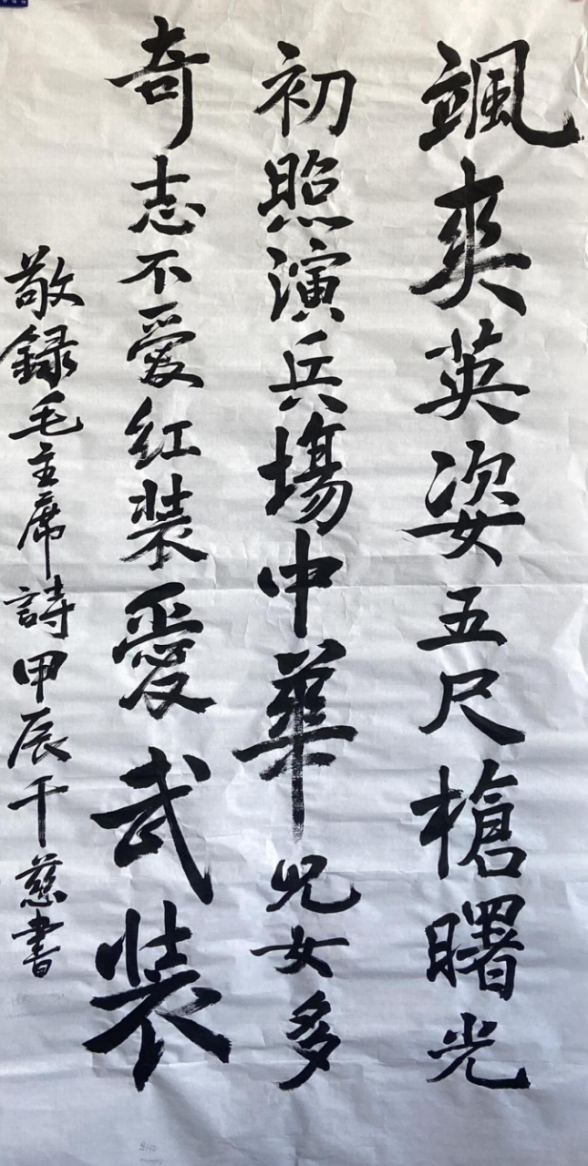 颯爽英姿五尺槍曙光
初照演兵場中華兒女多
奇志不愛红装愛武装
敬録毛主席詩甲辰千慈書